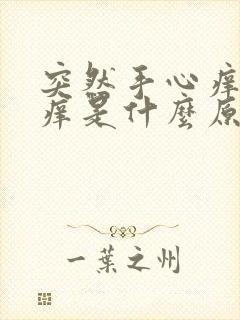 突然手心痒
痒是什麼原
一葉之州